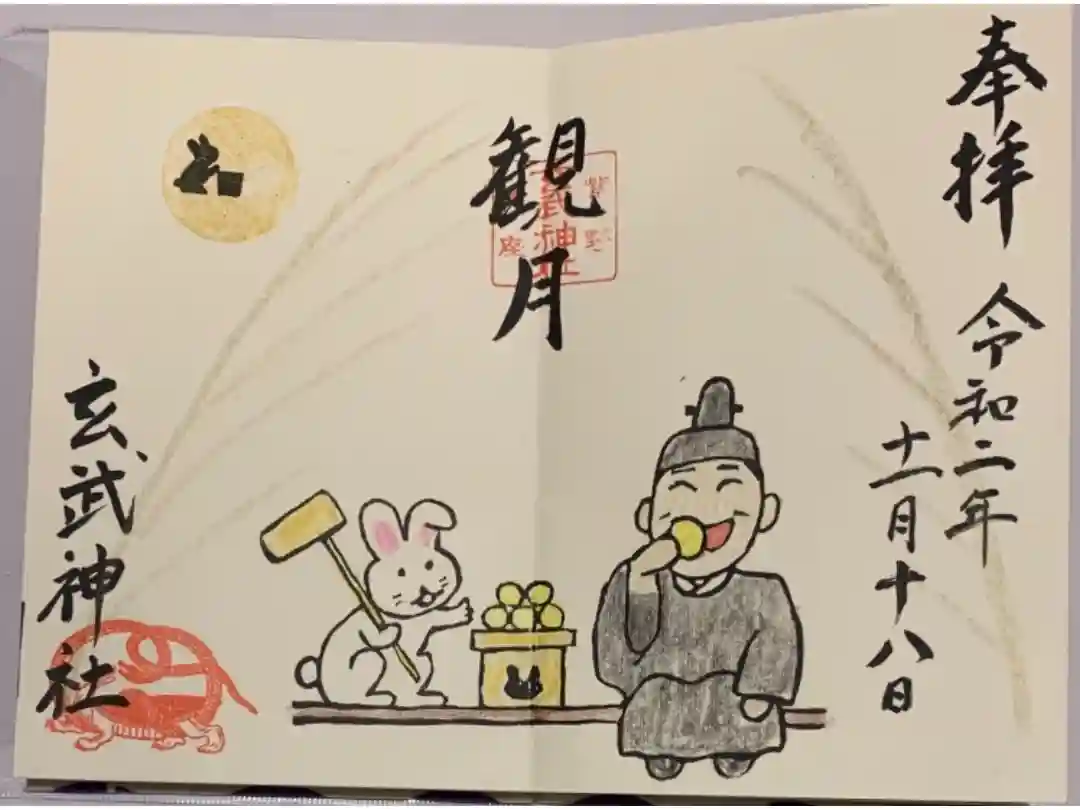 奉拝
令和二年
十一月十八日
観月
紫野
玄武神社
座
玄武神社